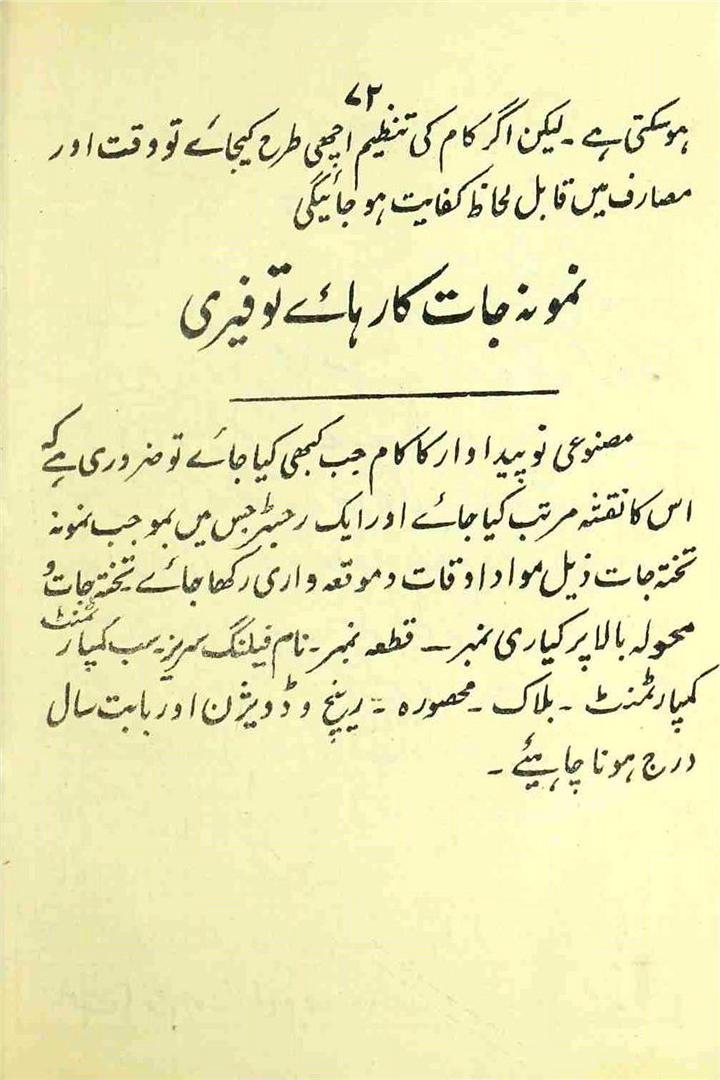 ۷۲
ہوسکتی ہے ۔ لیکن اگر کام کی تنظیم اچھی طرح کیجائے تو وقت اور
مصارف میں قابل لحاظ کفایت ہوجائیگی
نمونہ جات کارہائے توفیری
مصنوعی نوپیداوار کا کام جب کبھی کیا جائے تو ضروری ہے کہ
اس کا نقشہ مرتب کیا جائے اور ایک رجسٹر جس میں بموجب نمونہ
تختہ جات ذیل مواد اوقات و موقعہ واری رکھا جائے ۔ تختہ جات و
محولہ بالا پر کیاری نمبر ۔ قطعہ نمبر ۔ نام فیلنگ سریز ۔ سب کمپارٹمنٹ
کمپارٹمنٹ ۔ بلاک ۔ محصورہ ۔ رینج و ڈویژن اور بابت سال
درج ہونا چاہیئے ۔